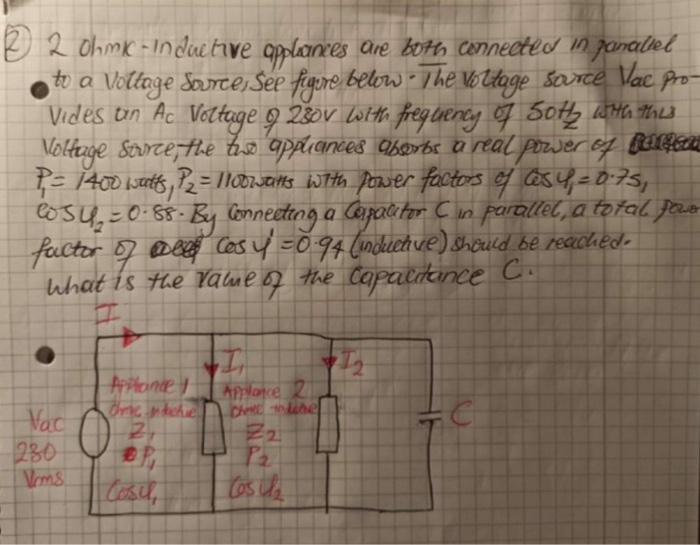 2 2 Ohmic-Inductive appliances are both connected in parallel
to a Voltage Source, See figure below. The voltage source Vac pro-
Vides an Ac Voltage of 230V with frequency of 50Hz with this
Voltage Source, the two appliances absorbs a real power of
P1 = 1400 watts, P2 = 1100 watts with Power factors of Cosφ1 = 0.75,
cosφ2 = 0.88. By Connecting a Capacitor C in parallel, a total power
factor of cosφ = 0.94 (inductive) should be reached.
What is the value of the capacitance C.
I
I1 I2
Appliance 1 Appliance 2
Ohmic inductive Ohmic inductive
Vac Z1 Z2 C
230 P1 P2
Vrms Cosφ1 Cosφ2